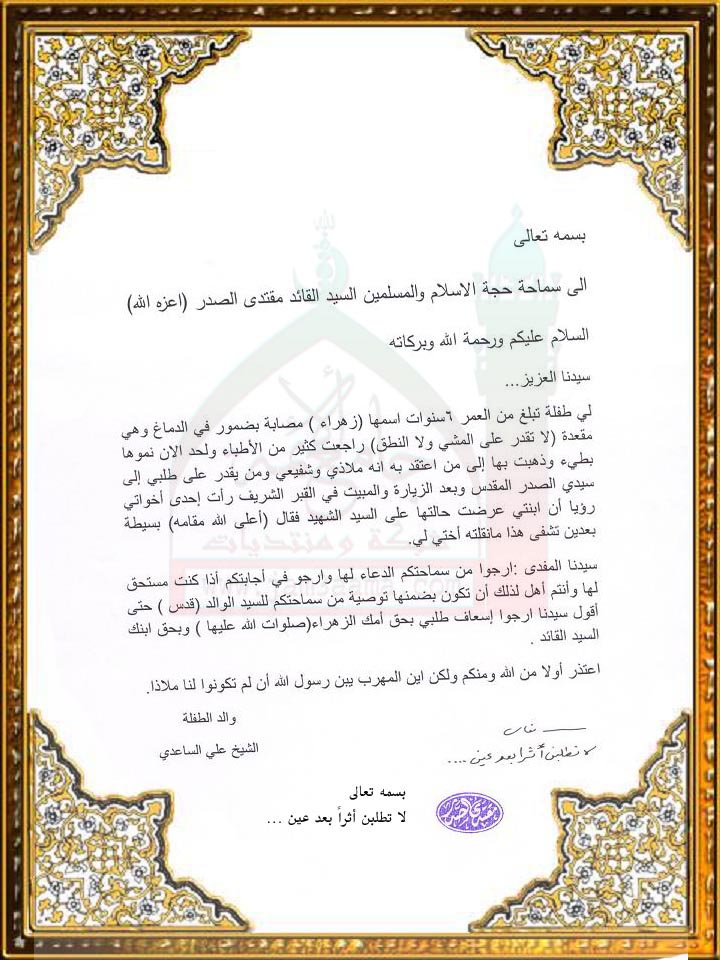 بسمه تعالى
الى سماحة حجة الاسلام والمسلمين السيد القائد مقتدى الصدر (اعزه الله)
السلام عليكم ورحمة الله وبركاته
سيدنا العزيز...
لي طفلة تبلغ من العمر ٦سنوات اسمها (زهراء ) مصابة بضمور في الدماغ وهي
مقعدة (لا تقدر على المشي ولا النطق) راجعت كثير من الأطباء ولحد الان نموها
بطيء وذهبت بها إلى من اعتقد به انه ملاذي وشفيعي ومن يقدر على طلبي إلى
سيدي الصدر المقدس وبعد الزيارة والمبيت في القبر الشريف رأت إحدى أخواتي
رؤيا أن ابنتي عرضت حالتها على السيد الشهيد فقال (أعلى الله مقامه) بسيطة
بعدين تشفى هذا مانقلته أختي لي.
سيدنا المفدى :ارجوا من سماحتكم الدعاء لها وارجو في أجابتكم أذا كنت مستحق
لها وأنتم أهل لذلك أن تكون بضمنها توصية من سماحتكم للسيد الوالد (قدس ) حتى
أقول سيدنا ارجوا إسعاف طلبي بحق أمك الزهراء(صلوات الله عليها ) وبحق ابنك
السيد القائد .
اعتذر أولا من الله ومنكم ولكن اين المهرب يبن رسول الله أن لم تكونوا لنا ملاذا.
والد الطفلة
الشيخ علي الساعدي
لا تطلبن أثرا بعد عين ....
بسمه تعالى
لا تطلبن أثراً بعد عين ...
شبكة ومنتديات